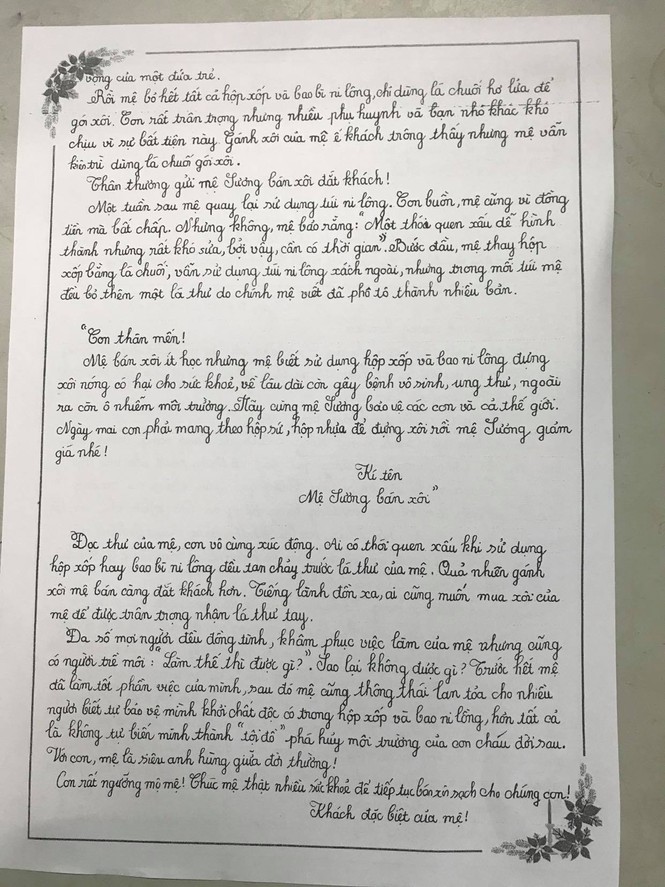 vọng của một đứa trẻ.
Rồi mệ bỏ hết tất cả hộp xốp và bao bì ni lông, chỉ dùng lá chuối hơ lửa để
gói xôi. Con rất trân trọng nhưng nhiều phụ huynh và bạn nhỏ khác khó
chịu vì sự bất tiện này. Gánh xôi của mệ ế khách trông thấy nhưng mệ vẫn
kiên trì dùng lá chuối gói xôi.
Thân thương gửi mệ Sương bán xôi đắt khách!
Một tuần sau mệ quay lại sử dụng túi ni lông. Con buồn, mệ cũng vì đồng
tiền mà bất chấp. Nhưng không, mệ bảo rằng: "Một thói quen xấu dễ hình
thành nhưng rất khó sửa, bởi vậy, cần có thời gian". Bước đầu, mệ thay hộp
xốp bằng lá chuối, vẫn sử dụng túi ni lông xách ngoài, nhưng trong mỗi túi mệ
đều bỏ thêm một lá thư do chính mệ viết đã phô tô thành nhiều bản.
"Con thân mến!
Mệ bán xôi ít học nhưng mệ biết sử dụng hộp xốp và bao ni lông đựng
xôi nóng có hại cho sức khoẻ, về lâu dài còn gây bệnh vô sinh, ung thư, ngoài
ra còn ô nhiễm môi trường. Hãy cùng mệ Sương bảo vệ các con và cả thế giới.
Ngày mai con phải mang theo hộp sứ, hộp nhựa để đựng xôi rồi mệ Sương giảm
giá nhé!
Kí tên
Mệ Sương bán xôi"
Đọc thư của mệ, con vô cùng xúc động. Ai có thói quen xấu khi sử dụng
hộp xốp hay bao bì ni lông đều tan chảy trước lá thư của mệ. Quả nhiên gánh
xôi mệ bán càng đắt khách hơn. Tiếng lành đồn xa, ai cũng muốn mua xôi của
mệ để được trân trọng nhận lá thư tay.
Đa số mọi người đều đồng tình, khâm phục việc làm của mệ nhưng cũng
có người trề môi: "Làm thế thì được gì?". Sao lại không được gì? Trước hết mệ
đã làm tốt phần việc của mình, sau đó mệ cũng thông thái lan tỏa cho nhiều
người biết tự bảo vệ mình khỏi chất độc có trong hộp xốp và bao ni lông, hơn tất cả
là không tự biến mình thành "tội đồ" phá hủy môi trường của con cháu đời sau.
Với con, mệ là siêu anh hùng giữa đời thường!
Con rất ngưỡng mộ mệ! Chúc mệ thật nhiều sức khoẻ để tiếp tục bán xôi sạch cho chúng con!
Khách đặc biệt của mệ!